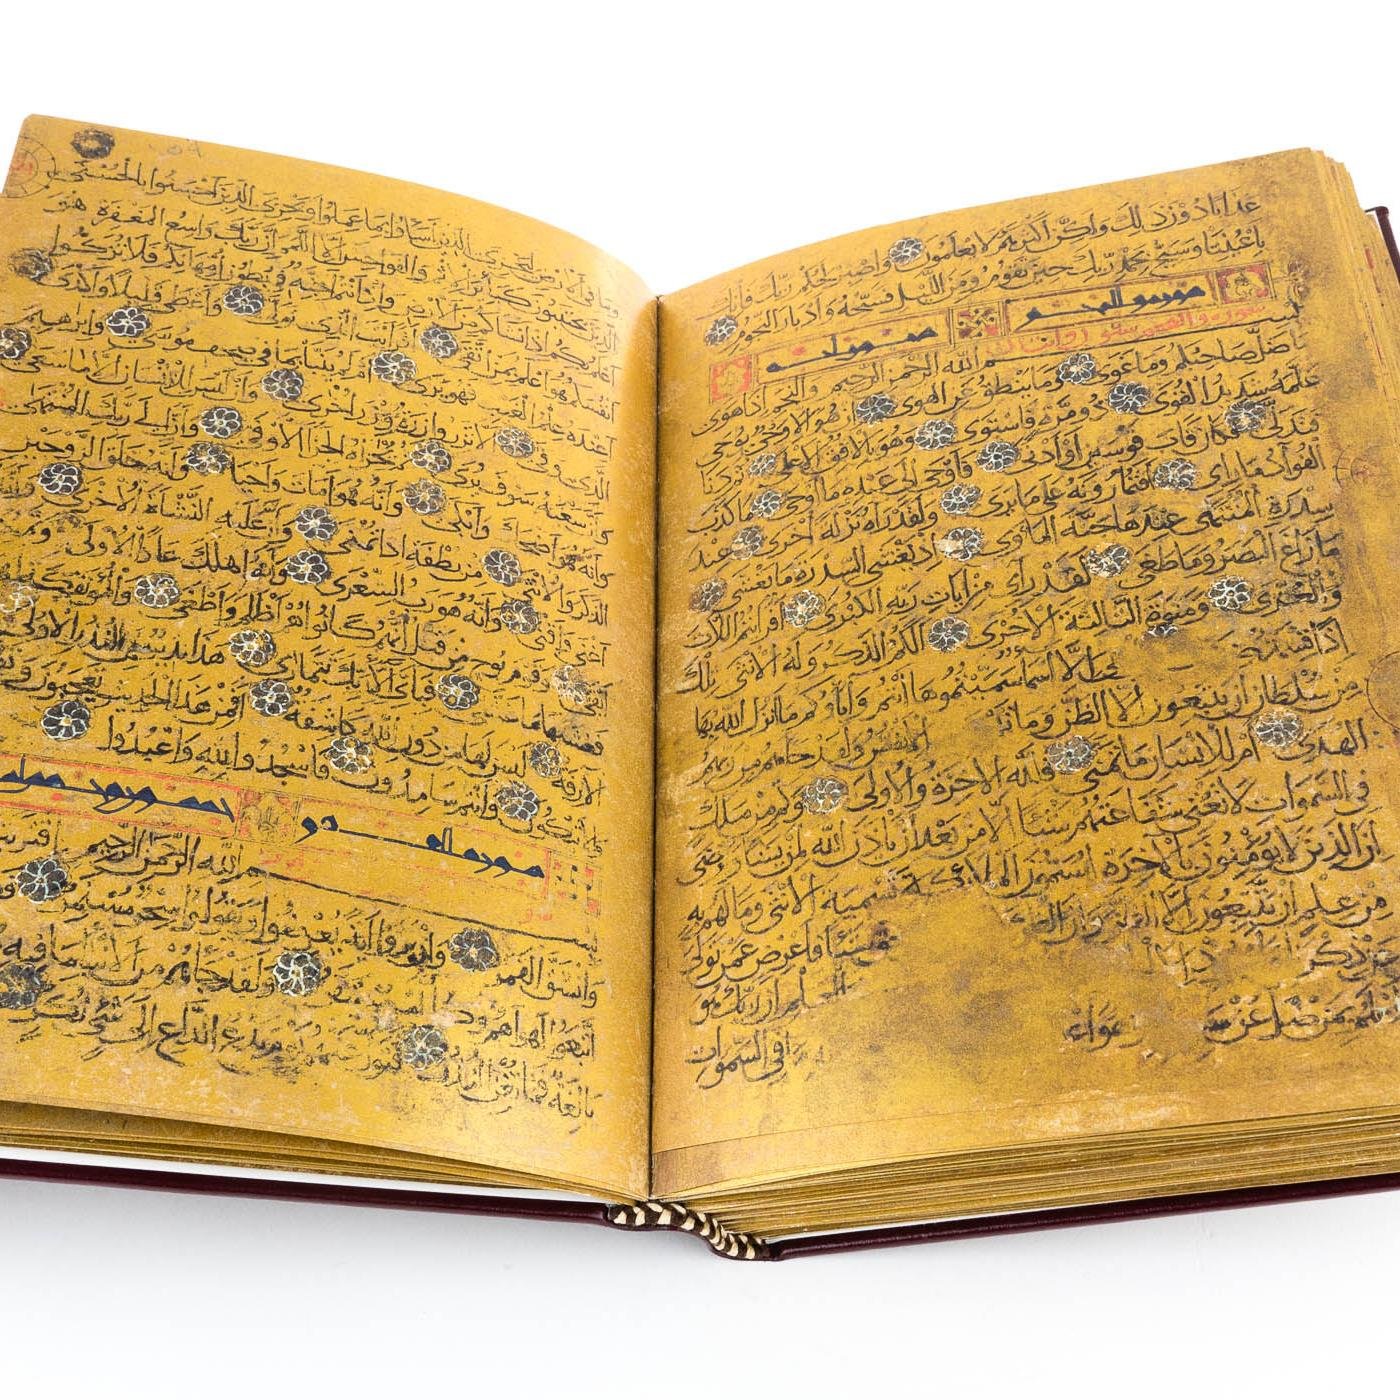 عذابا دون ذلك ولكن أكثرهم لا يعلمون واصبر لحكم ربك فإنك
بأعيننا وسبح بحمد ربك حين تقوم ومن الليل فسبحه وإدبار النجوم
سورة والنجم
بسم الله الرحمن الرحيم والنجم إذا هوى
ما ضل صاحبكم وما غوى وما ينطق عن الهوى إن هو إلا وحي يوحى
علمه شديد القوى ذو مرة فاستوى وهو بالأفق الأعلى ثم دنا
فتدلى فكان قاب قوسين أو أدنى فأوحى إلى عبده ما أوحى ما كذب
الفؤاد ما رأى أفتمارونه على ما يرى ولقد رآه نزلة أخرى عند
سدرة المنتهى عندها جنة المأوى إذ يغشى السدرة ما يغشى
ما زاغ البصر وما طغى لقد رأى من آيات ربه الكبرى أفرأيتم اللات
والعزى ومنوة الثالثة الأخرى ألكم الذكر وله الأنثى تلك
إذا قسمة إلا أسماء سميتموها أنتم وآباؤكم ما أنزل الله بها
من سلطان إن يتبعون إلا الظن وما الأنفس ولقد جاءهم من ربهم
الهدى أم للإنسان ما تمنى فلله الآخرة والأولى وكم من ملك
في السموات لا تغني شفاعتهم شيئا إلا من بعد أن يأذن الله لمن يشاء ويرضى
إن الذين لا يؤمنون بالآخرة ليسمون الملائكة تسمية الأنثى وما لهم به
من علم إن يتبعون إلا الظن وإن شيئا فأعرض عمن تولى
عن ذكرنا العلم إن ربك هو
أعلم بمن ضل عن في السموات
وما في الأرض ليجزي الذين أساءوا بما عملوا ويجزي الذين أحسنوا بالحسنى
الذين يجتنبون كبائر الإثم والفواحش إلا اللمم إن ربك واسع المغفرة هو
أعلم بكم إذ أنشأكم من الأرض وإذ أنتم أجنة في بطون أمهاتكم فلا تزكوا
أنفسكم هو أعلم بمن اتقى أفرأيت الذي تولى وأعطى قليلا وأكدى
أعنده علم الغيب فهو يرى أم لم ينبأ بما في صحف موسى وإبراهيم
الذي وفى ألا تزر وازرة وزر أخرى وأن ليس للإنسان إلا ما سعى
وأن سعيه سوف يرى ثم يجزاه الجزاء الأوفى وأن إلى ربك المنتهى
وأنه هو أضحك وأبكى وأنه هو أمات وأحيا وأنه خلق الزوجين
الذكر والأنثى من نطفة إذا تمنى وأن عليه النشأة الأخرى
أغنى وأقنى وأنه هو رب الشعرى وأنه أهلك عادا الأولى
أبقى وقوم نوح من قبل إنهم كانوا هم أظلم وأطغى والمؤتفكة
فغشاها ما غشى فبأي آلاء ربك تتمارى هذا نذير من النذر الأولى
الآزفة ليس لها من دون الله كاشفة أفمن هذا الحديث تعجبون
ولا تبكون وأنتم سامدون فاسجدوا لله واعبدوا
بسم الله الرحمن الرحيم
وانشق القمر وإن يروا آية يعرضوا ويقولوا سحر مستمر
واتبعوا أهواءهم ولقد جاءهم من الأنباء ما فيه
بالغة فما تغن النذر يوم يدع الداع إلى شيء نكر